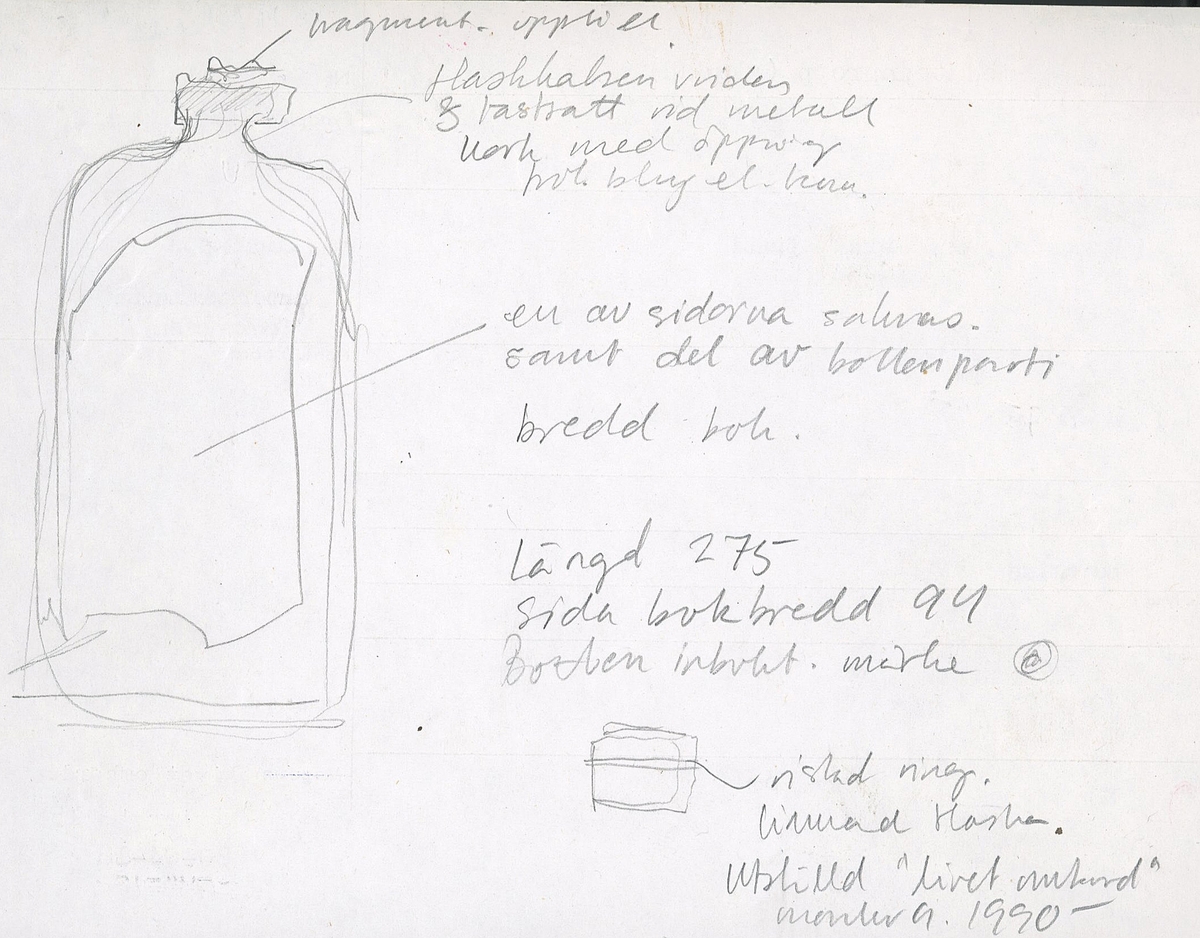 fragment.
Flaskhalsen vriden
& fastsatt vid metall
kork med öppning
en av sidorna saknas.
samt del av bottenparti
bredd
Längd 275
sida bredd 94
Botten märke
ristad ring.
limmad flaska.
Utställd "livet ombord"
monter 9. 1990–